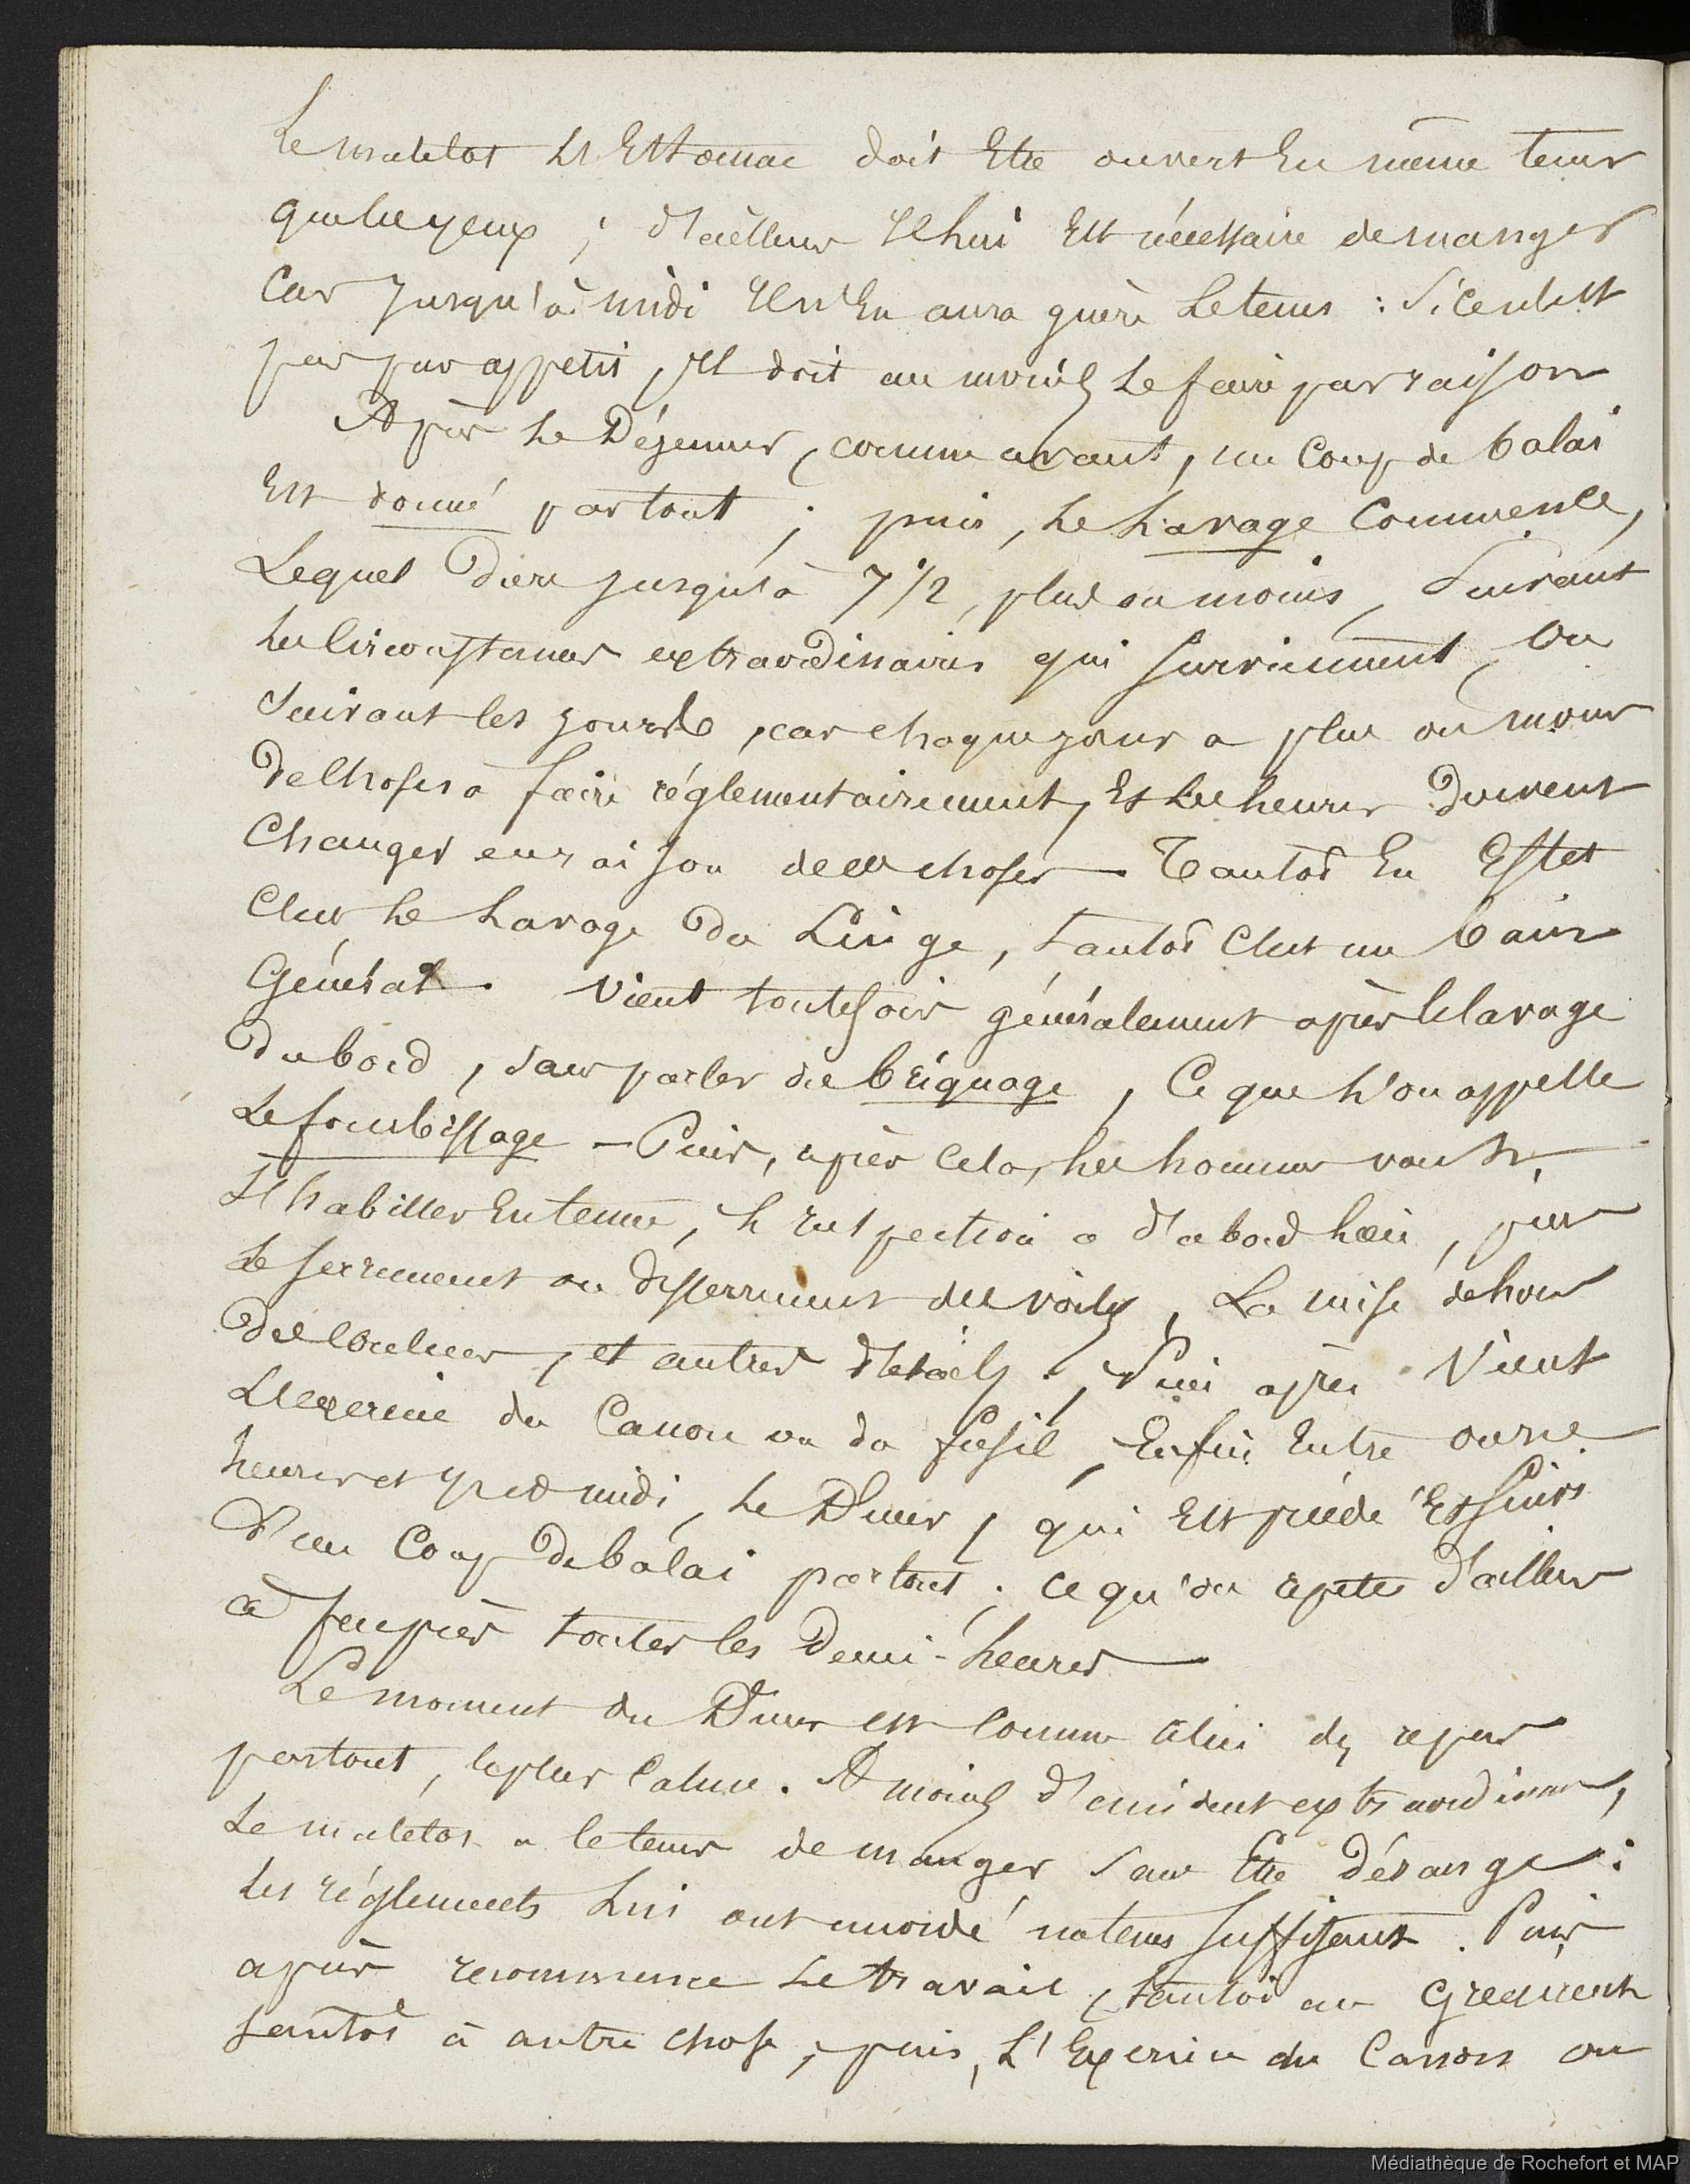 Le matelot L'Estomac doit Etre ouvert En même tems
que les yeux ; d'ailleurs Il lui Est nécessaire de manger
Car Jusqu'à midi Il n'En aura guère Le tems : Si ce n'Est
pas par appetit, Il doit au moins Le faire par raison
Après Le Déjeuner, comme avant, un Coup de balai
Est donné partout ; puis, Le Lavage Commence,
Lequel dure jusqu'à 7 1/2, plus ou moins, Suivant
Les Circonstances extraordinaires qui surviennent, ou
Suivant les jours, car chaque jour a plus ou moins
de Choses à faire réglementairement, Et Les heures doivent
Changer en raison de ces choses — Tantôt En Effet
C'est Le Lavage du Linge, tantôt C'est un bain
Général. Vient toutefois généralement après le lavage
du bord, sans parler du briquage, Ce que L'on appelle
Le fourbissage — Puis, après Cela, Les hommes vont
S'habiller En tenue, L'Inspection a d'abord lieu, puis
Le serrement ou desserrement des voiles, La mise dehors
des Couleurs, et autres détails. Puis après Vient
L'Exercice du Canon ou du fusil, Enfin Entre onze
heures et midi, Le Diner, qui Est précédé Et suivi
d'un Coup de balai partout ; ce qu'on répète d'ailleurs
à peu près toutes les Demi-heures —
Le moment du Diner est Comme Celui des repas
partout, le plus Calme. A moins d'incident extraordinaire,
Le matelot a le tems de manger sans Etre Dérangé :
Les réglements Lui ont accordé un tems suffisant. Puis
après recommence Le travail, tantôt au Gréement
tantôt à autre chose, puis, L'Exercice du Canon ou
Médiathèque de Rochefort et MAP